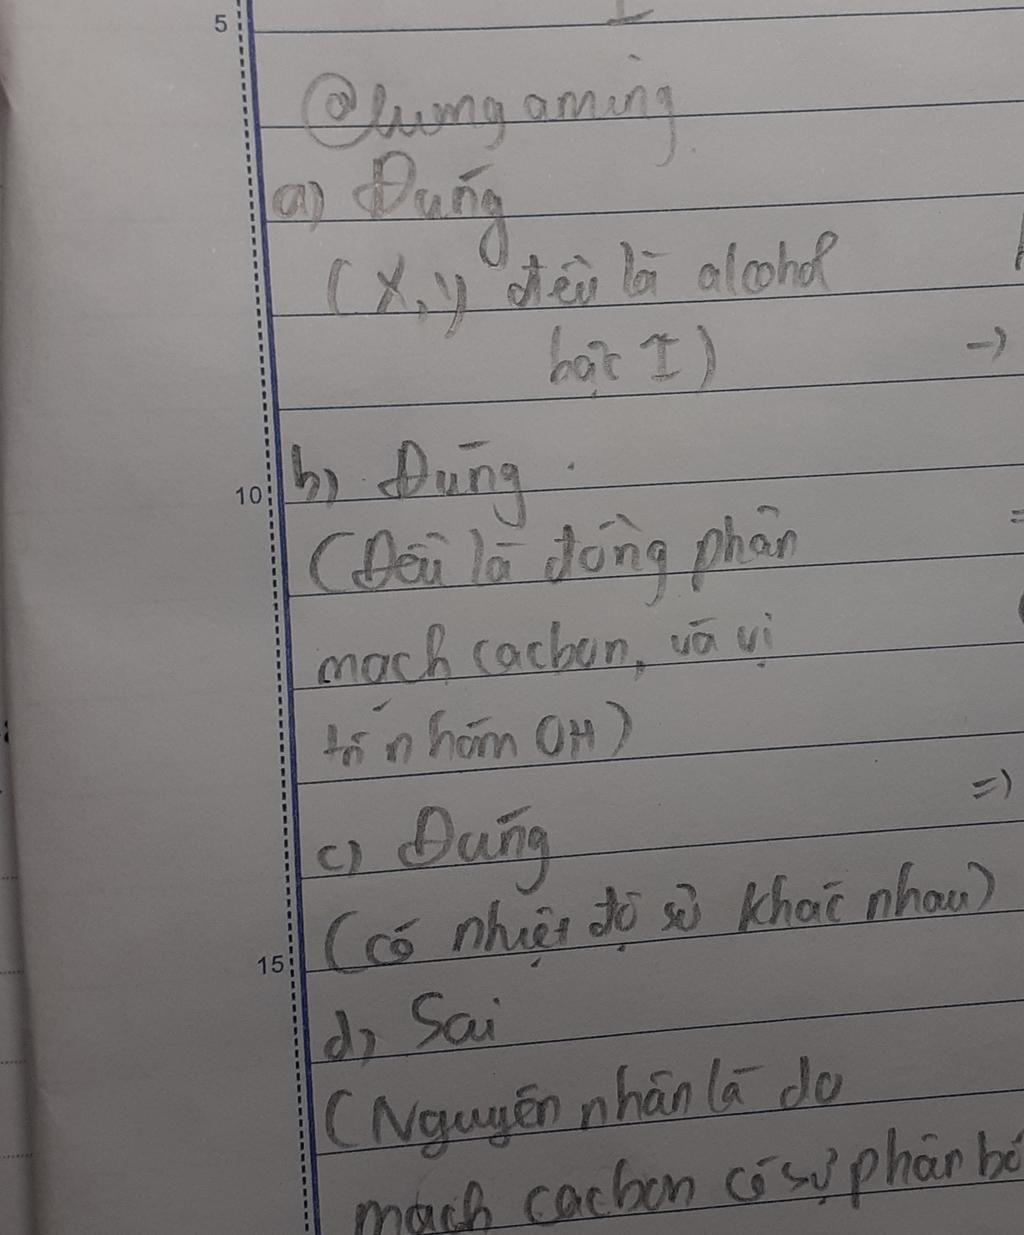 5
@lumgaming
a) Đúng
(X, Y đều là alcohol
bậc I)
→
b) Đúng
10
(Đều là đồng phân
=
mạch cacbon, và vị
trí nhóm OH)
=)
c) Đúng
(có nhiệt độ sôi khác nhau)
15
d) Sai
(Nguyên nhân là do
mạch cacbon có sự phân bố